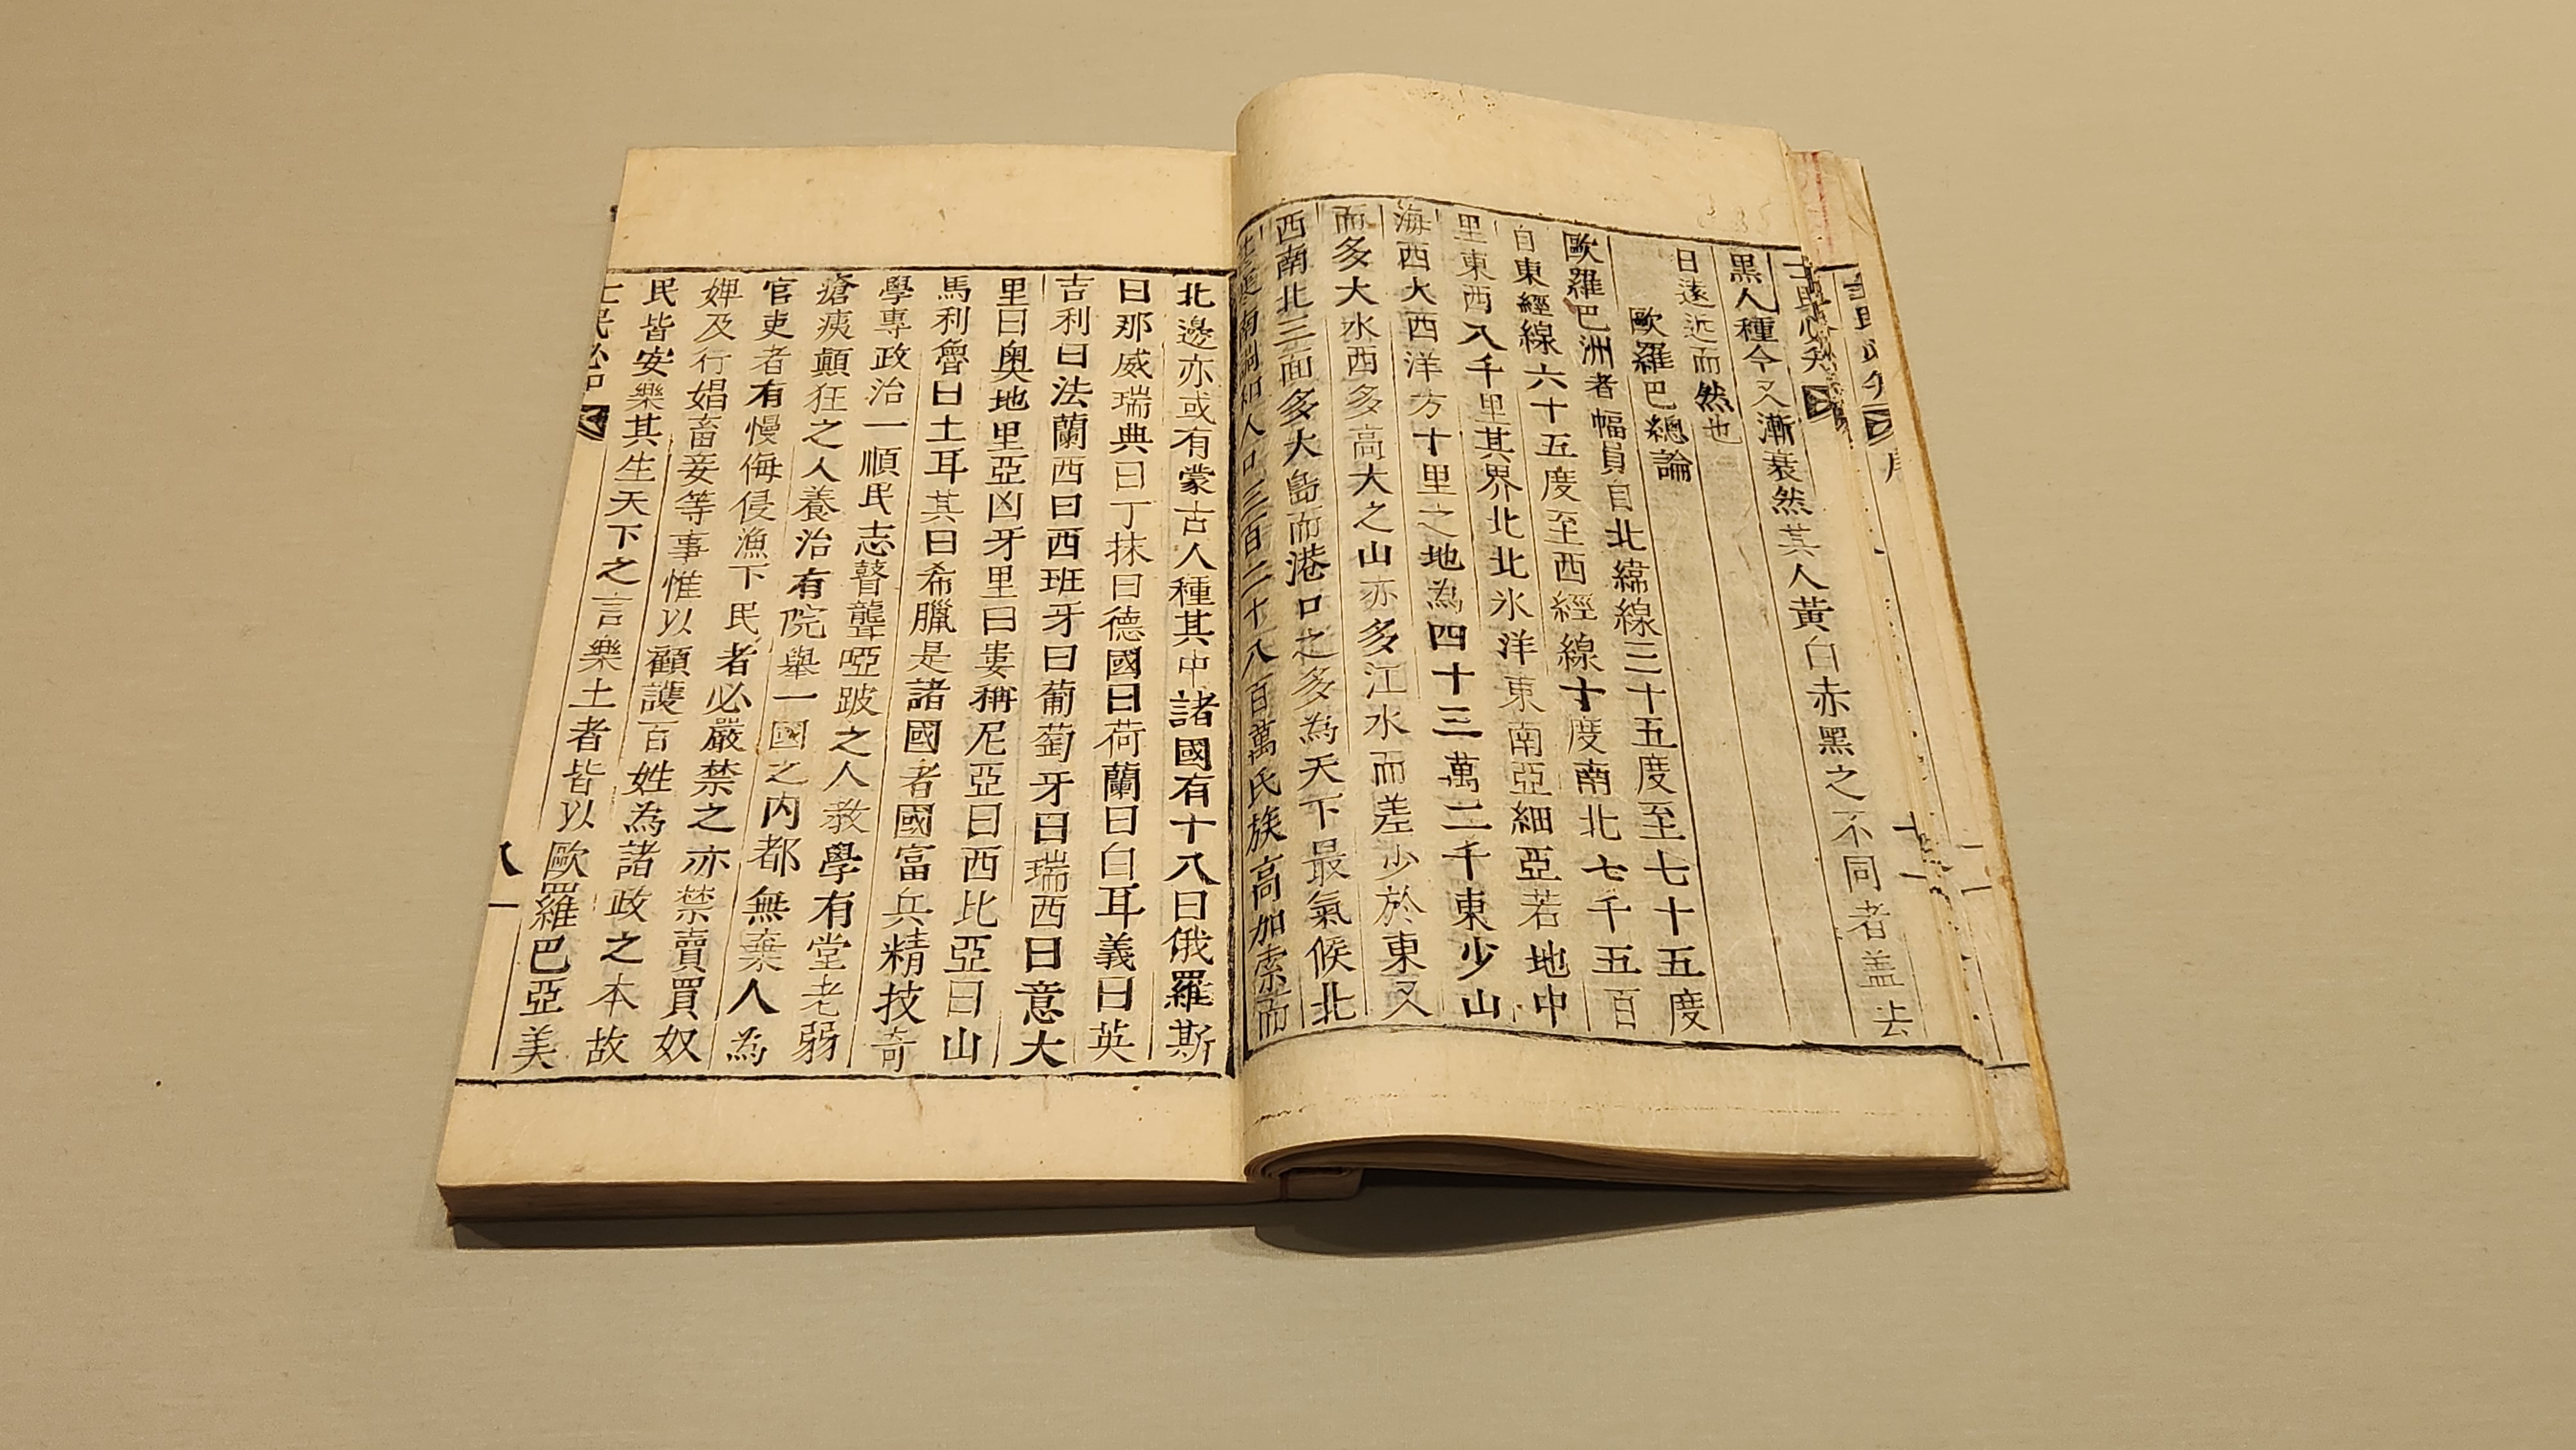 士民必知
黑人種今又漸衰然其人黃白赤黑之不同者盖去
日遠近而然也
歐羅巴總論
歐羅巴洲者幅員自北緯線三十五度至七十五度
自東經線六十五度至西經線十度南北七千五百
里東西八千里其界北北氷洋東南亞細亞若地中
海西大西洋方十里之地為四十三萬二千東少山
而多大水西多高大之山亦多江水而差少於東又
西南北三面多大島而港口之多為天下最氣候北
人口三百二十八百萬氏族高加索而
北邊亦或有蒙古人種其中諸國有十八曰俄羅斯
曰那威瑞典曰丁抹曰德國曰荷蘭曰白耳義曰英
吉利曰法蘭西曰西班牙曰葡萄牙曰瑞西曰意大
里曰奥地里亞凶牙里曰婁稱尼亞曰西比亞曰山
馬利魯曰土耳其曰希臘是諸國者國富兵精技奇
學專政治一順民志瞽聾啞跛之人教學有堂老弱
瘡痍顛狂之人養治有院舉一國之内都無棄人為
官吏者有慢侮侵漁下民者必嚴禁之亦禁賣買奴
婢及行娼畜妾等事惟以顧護百姓為諸政之本故
民皆安樂其生天下之言樂土者皆以歐羅巴亞美
士民必知
八